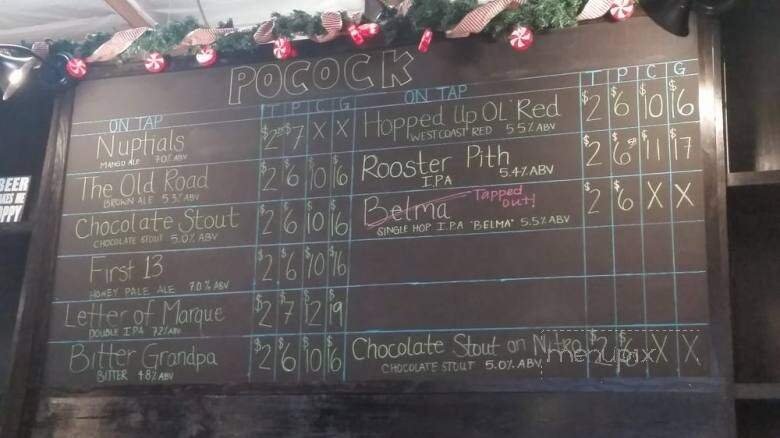 POCOCK
ON TAP T P C G
Nuptials $2 $7 X X
MANGO ALE 7.0% ABV
The Old Road $2 $6 $10 $16
BROWN ALE 5.3% ABV
Chocolate Stout $2 $6 $10 $16
CHOCOLATE STOUT 5.0% ABV
First 13 $2 $6 $10 $16
HONEY PALE ALE 7.0% ABV
Letter of Marque $2 $7 $12 $19
DOUBLE I.P.A 7.2% ABV
Bitter Grandpa $2 $6 $10 $16
BITTER 4.8% ABV
ON TAP T P C G
Hopped Up OL' Red $2 $6 $10 $16
WEST COAST RED 5.5% ABV
Rooster Pith $2 $6 $11 $17
I.P.A 5.4% ABV
Belma Tapped out! $2 $6 X X
SINGLE HOP I.P.A "BELMA" 5.5% ABV
Chocolate Stout on Nitro $2 $6 X X
CHOCOLATE STOUT 5.0% ABV
menupix
BEER